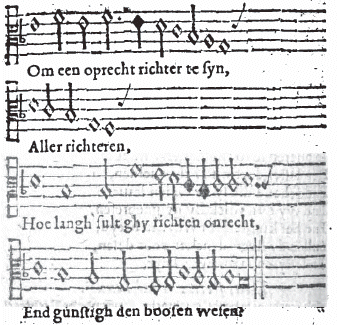 Om een oprecht richter te syn,
Aller richteren,
Hoe langh sult ghy richten onrecht,
End gunstigh den boosen wesen?